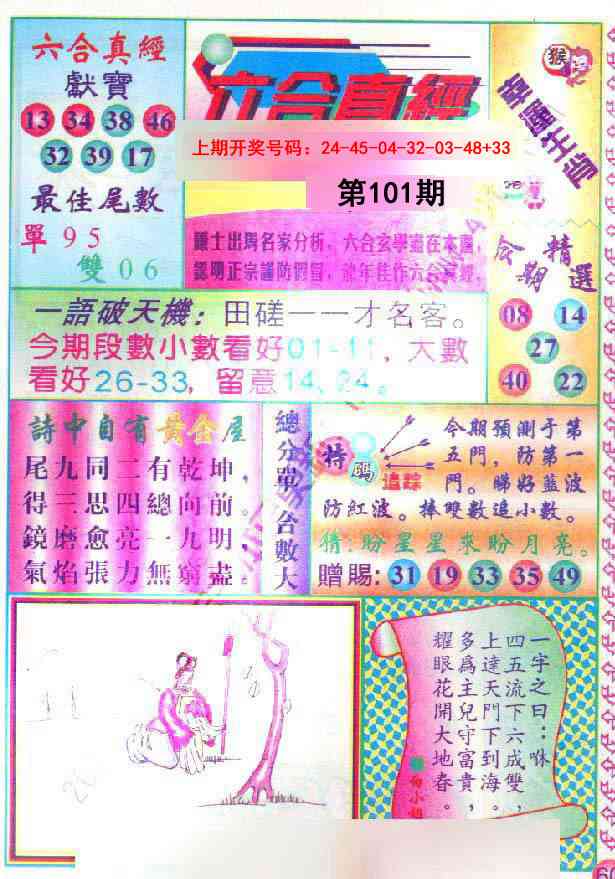 六合真經
獻寶
13 34 38 46
32 39 17
最佳尾數
單 9 5
雙 0 6
六合真經
上期开奖号码：24-45-04-32-03-48+33
第101期
猴
幸運主肖
今期
精選
08 14
27
40 22
一語破天機：田磋一一才名客。
今期段數小數看好01-11，大數
看好26-33，留意14、24。
詩中自有黃金屋
尾九同二有乾坤，
得三思四總向前。
鏡磨愈亮一九明，
氣焰張力無窮盡。
總分單
合數大
特碼
追踪
今期預測于第
五門，防第一
門。睇好藍波
防紅波。捧雙數追小數。
猜：盼星星來盼月亮。
贈賜：31 19 33 35 49
一字之曰：咻
四五流下六成雙，
上達天門下到海。
多爲主兒守富貴，
耀眼花開大地春。